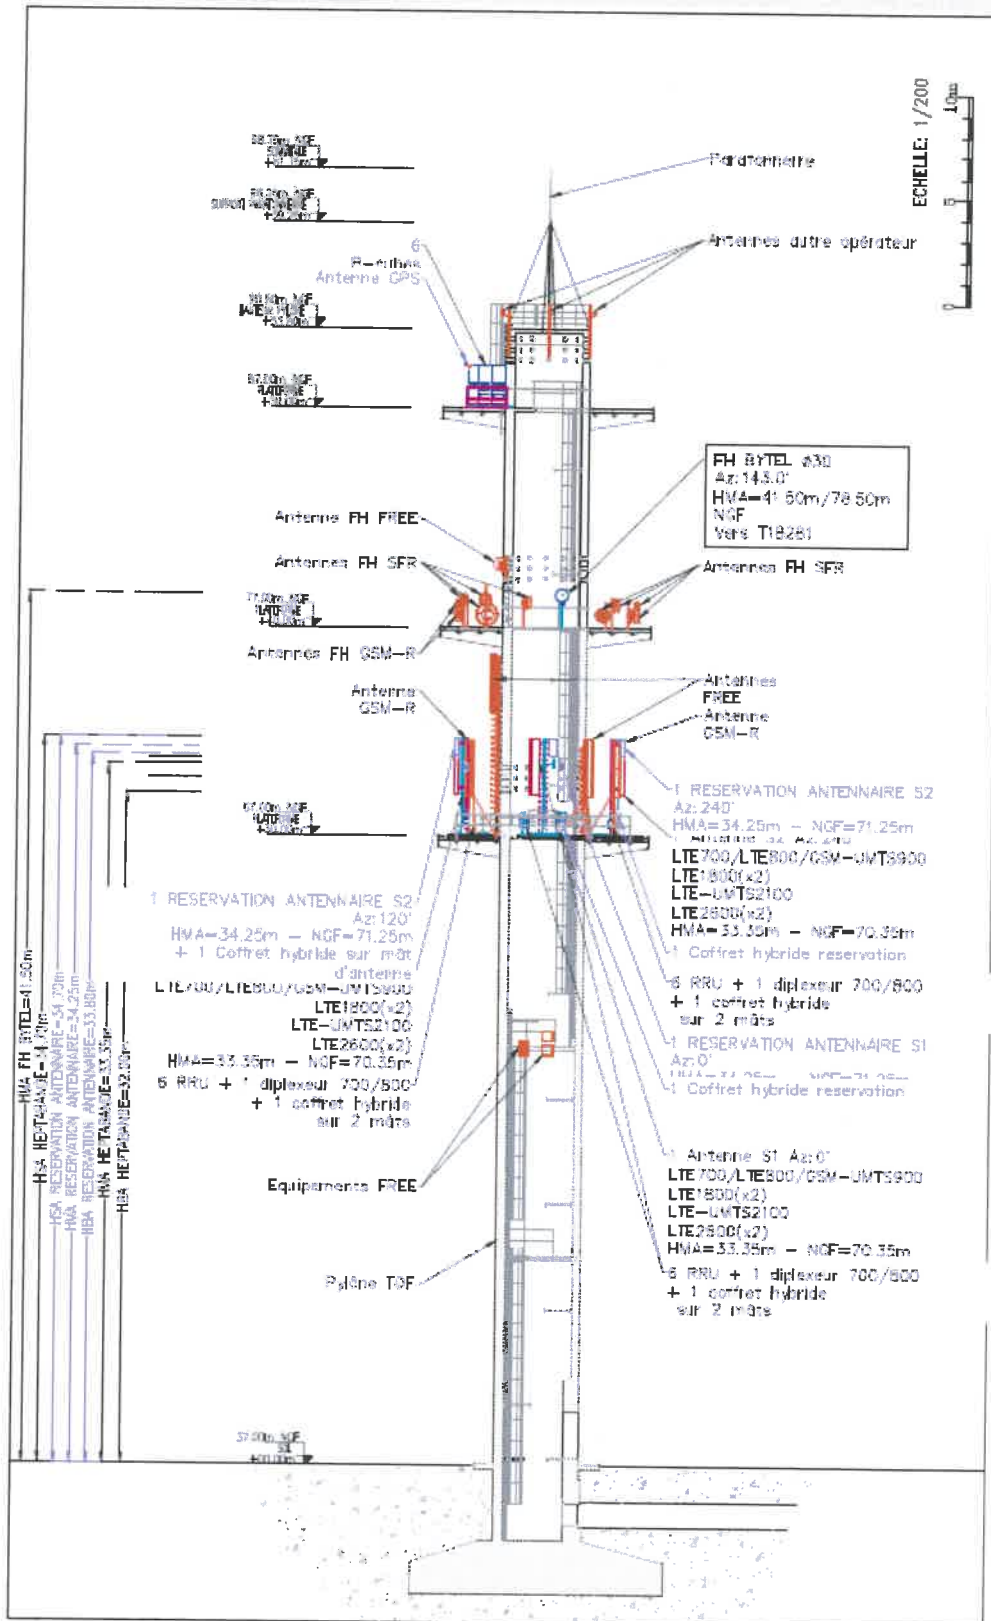 ECHELLE: 1/200
10m
5
0
Paratonnerre
Antennes autre opérateur
6
Antenne GPS
FH BYTEL ø30
Az:143.0°
HMA=41.50m/78.50m
NGF
Vers T18281
Antenne FH FREE
Antennes FH SFR
Antennes FH SFR
77.00m NGF
PLATEFORME
Antennes FH GSM-R
Antenne
GSM-R
Antennes
FREE
Antenne
GSM-R
67.00m NGF
PLATEFORME
1 RESERVATION ANTENNAIRE S2
Az:240°
HMA=34.25m - NGF=71.25m
LTE700/LTE800/GSM-UMTS900
LTE1800(x2)
LTE-UMTS2100
LTE2600(x2)
HMA=33.35m - NGF=70.35m
1 Coffret hybride reservation
6 RRU + 1 diplexeur 700/800
+ 1 coffret hybride
sur 2 mâts
1 RESERVATION ANTENNAIRE S1
Az:0°
1 Coffret hybride reservation
1 Antenne S1 Az:0°
LTE700/LTE800/GSM-UMTS900
LTE1800(x2)
LTE-UMTS2100
LTE2600(x2)
HMA=33.35m - NGF=70.35m
6 RRU + 1 diplexeur 700/800
+ 1 coffret hybride
sur 2 mâts
1 RESERVATION ANTENNAIRE S2
Az:120°
HMA=34.25m - NGF=71.25m
+ 1 Coffret hybride sur mât
d'antenne
LTE700/LTE800/GSM-UMTS900
LTE1800(x2)
LTE-UMTS2100
LTE2600(x2)
HMA=33.35m - NGF=70.35m
6 RRU + 1 diplexeur 700/800
+ 1 coffret hybride
sur 2 mâts
Equipements FREE
Pylône TDF
HMA FH BYTEL=41.50m
HSA HEPTABANDE=34.70m
HSA RESERVATION ANTENNAIRE=34.70m
HMA RESERVATION ANTENNAIRE=34.25m
HBA RESERVATION ANTENNAIRE=33.80m
HMA HEPTABANDE=33.35m
HBA HEPTABANDE=32.00m
37.00m NGF
SOL
+00.00m